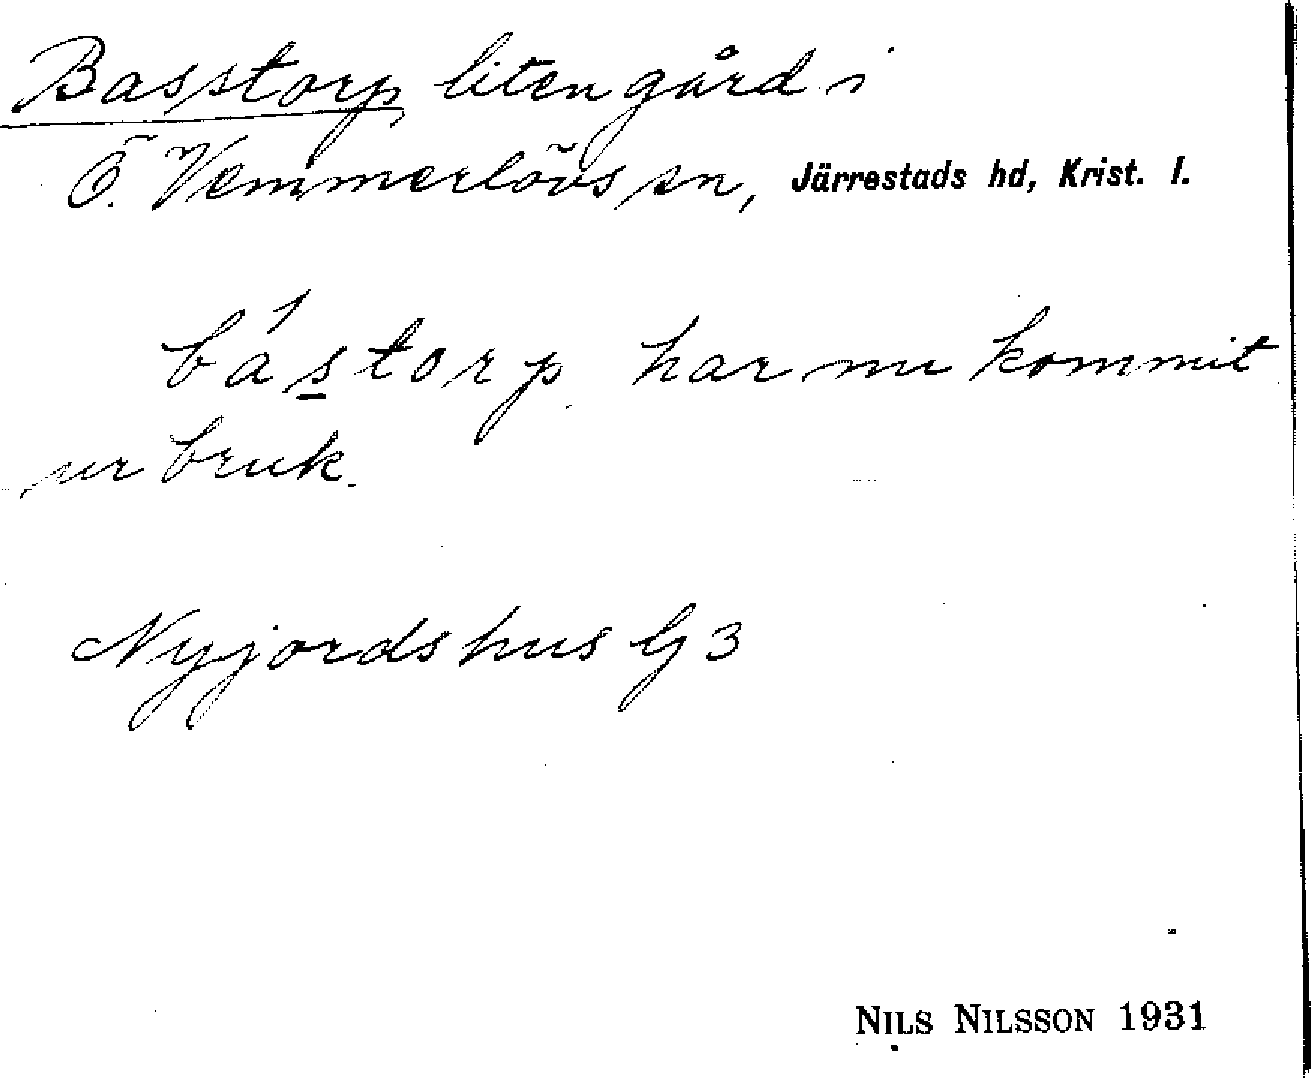 Basstorp liten gård i
Ö. Vemmerlövs sn, Järrestads hd, Krist. l.
bástorp har nu kommit
ur bruk.
Nyjordshus G 3
NILS NILSSON 1931